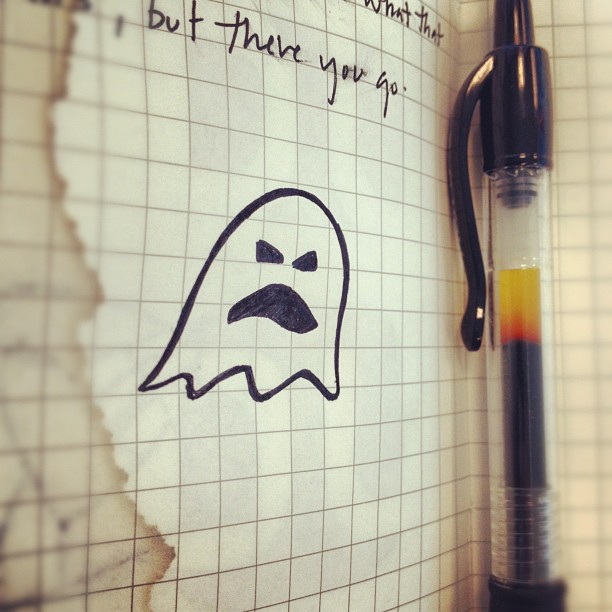 what that
, but there you go.